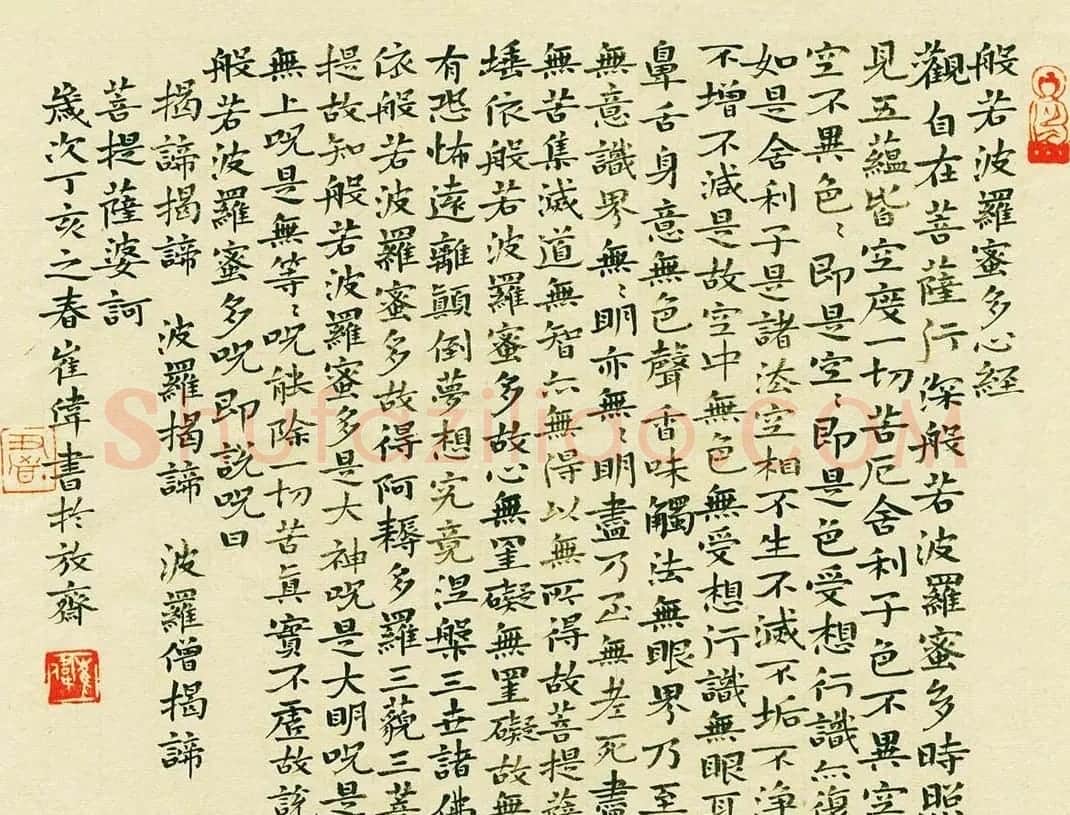 般若波羅蜜多心經
觀自在菩薩行深般若波羅蜜多時照
見五蘊皆空度一切苦厄舍利子色不異空
空不異色〻即是空〻即是色受想行識亦復
如是舍利子是諸法空相不生不滅不垢不淨
不增不減是故空中無色無受想行識無眼耳
鼻舌身意無色聲香味觸法無眼界乃至
無意識界無〻明亦無〻明盡乃至無老死盡
無苦集滅道無智亦無得以無所得故菩提薩
埵依般若波羅蜜多故心無罣礙無罣礙故無
有恐怖遠離顛倒夢想究竟涅槃三世諸佛
依般若波羅蜜多故得阿耨多羅三藐三菩
提故知般若波羅蜜多是大神呪是大明呪是
無上呪是無等〻呪能除一切苦真實不虛故說
般若波羅蜜多呪即說呪曰
揭諦揭諦 波羅揭諦 波羅僧揭諦
菩提薩婆訶
歲次丁亥之春崔偉書於放齋
崔偉
Shufaziliao.COM